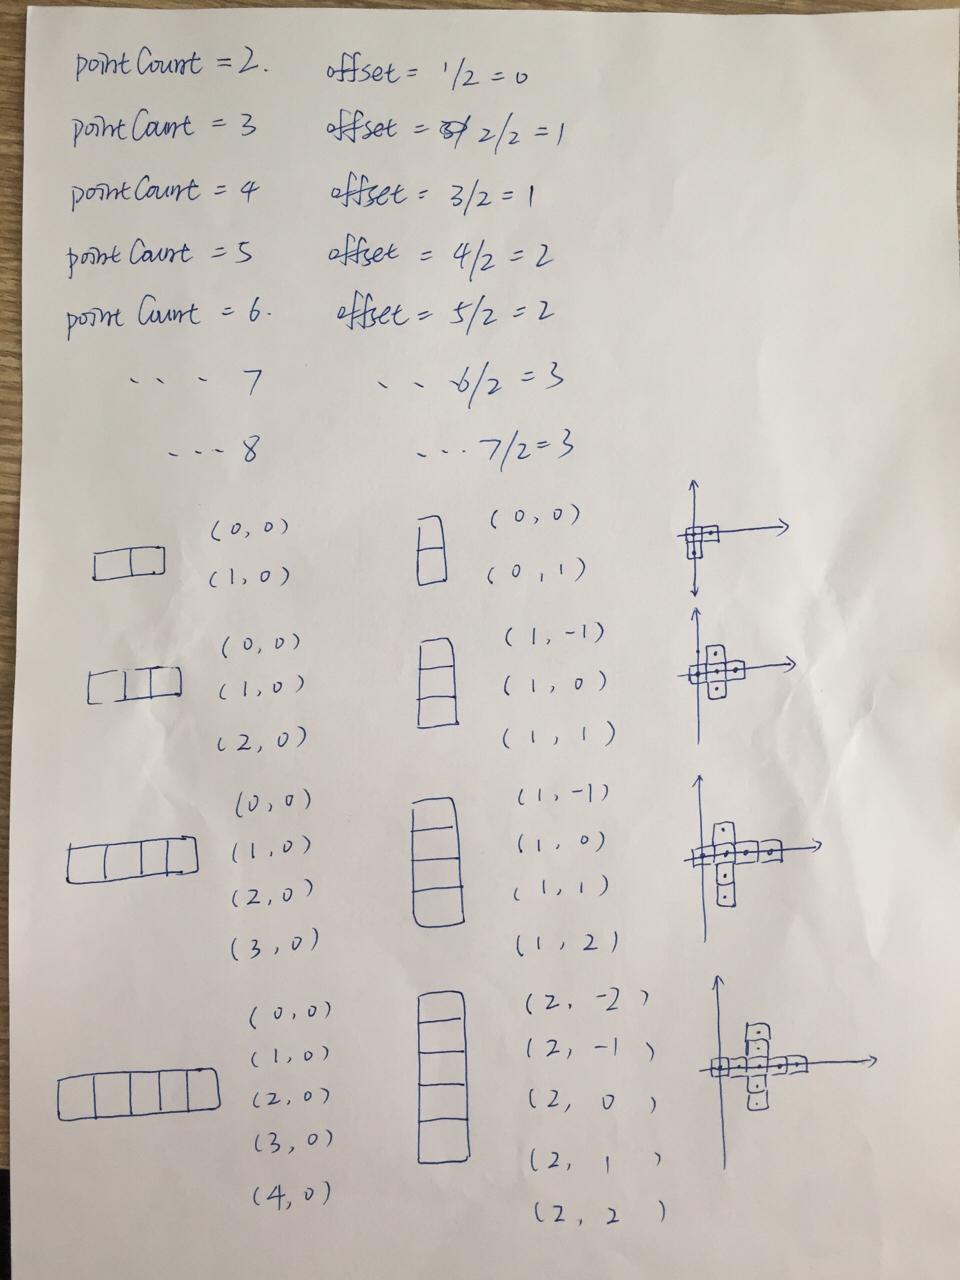 pointCount = 2. offset = 1/2 = 0
pointCount = 3 offset = 2/2 = 1
pointCount = 4 offset = 3/2 = 1
pointCount = 5 offset = 4/2 = 2
pointCount = 6. offset = 5/2 = 2
... 7 .. 6/2 = 3
... 8 ... 7/2 = 3
(0, 0) (0, 0)
(1, 0) (0, 1)
(0, 0) (1, -1)
(1, 0) (1, 0)
(2, 0) (1, 1)
(0, 0) (1, -1)
(1, 0) (1, 0)
(2, 0) (1, 1)
(3, 0) (1, 2)
(0, 0) (2, -2)
(1, 0) (2, -1)
(2, 0) (2, 0)
(3, 0) (2, 1)
(4, 0) (2, 2)